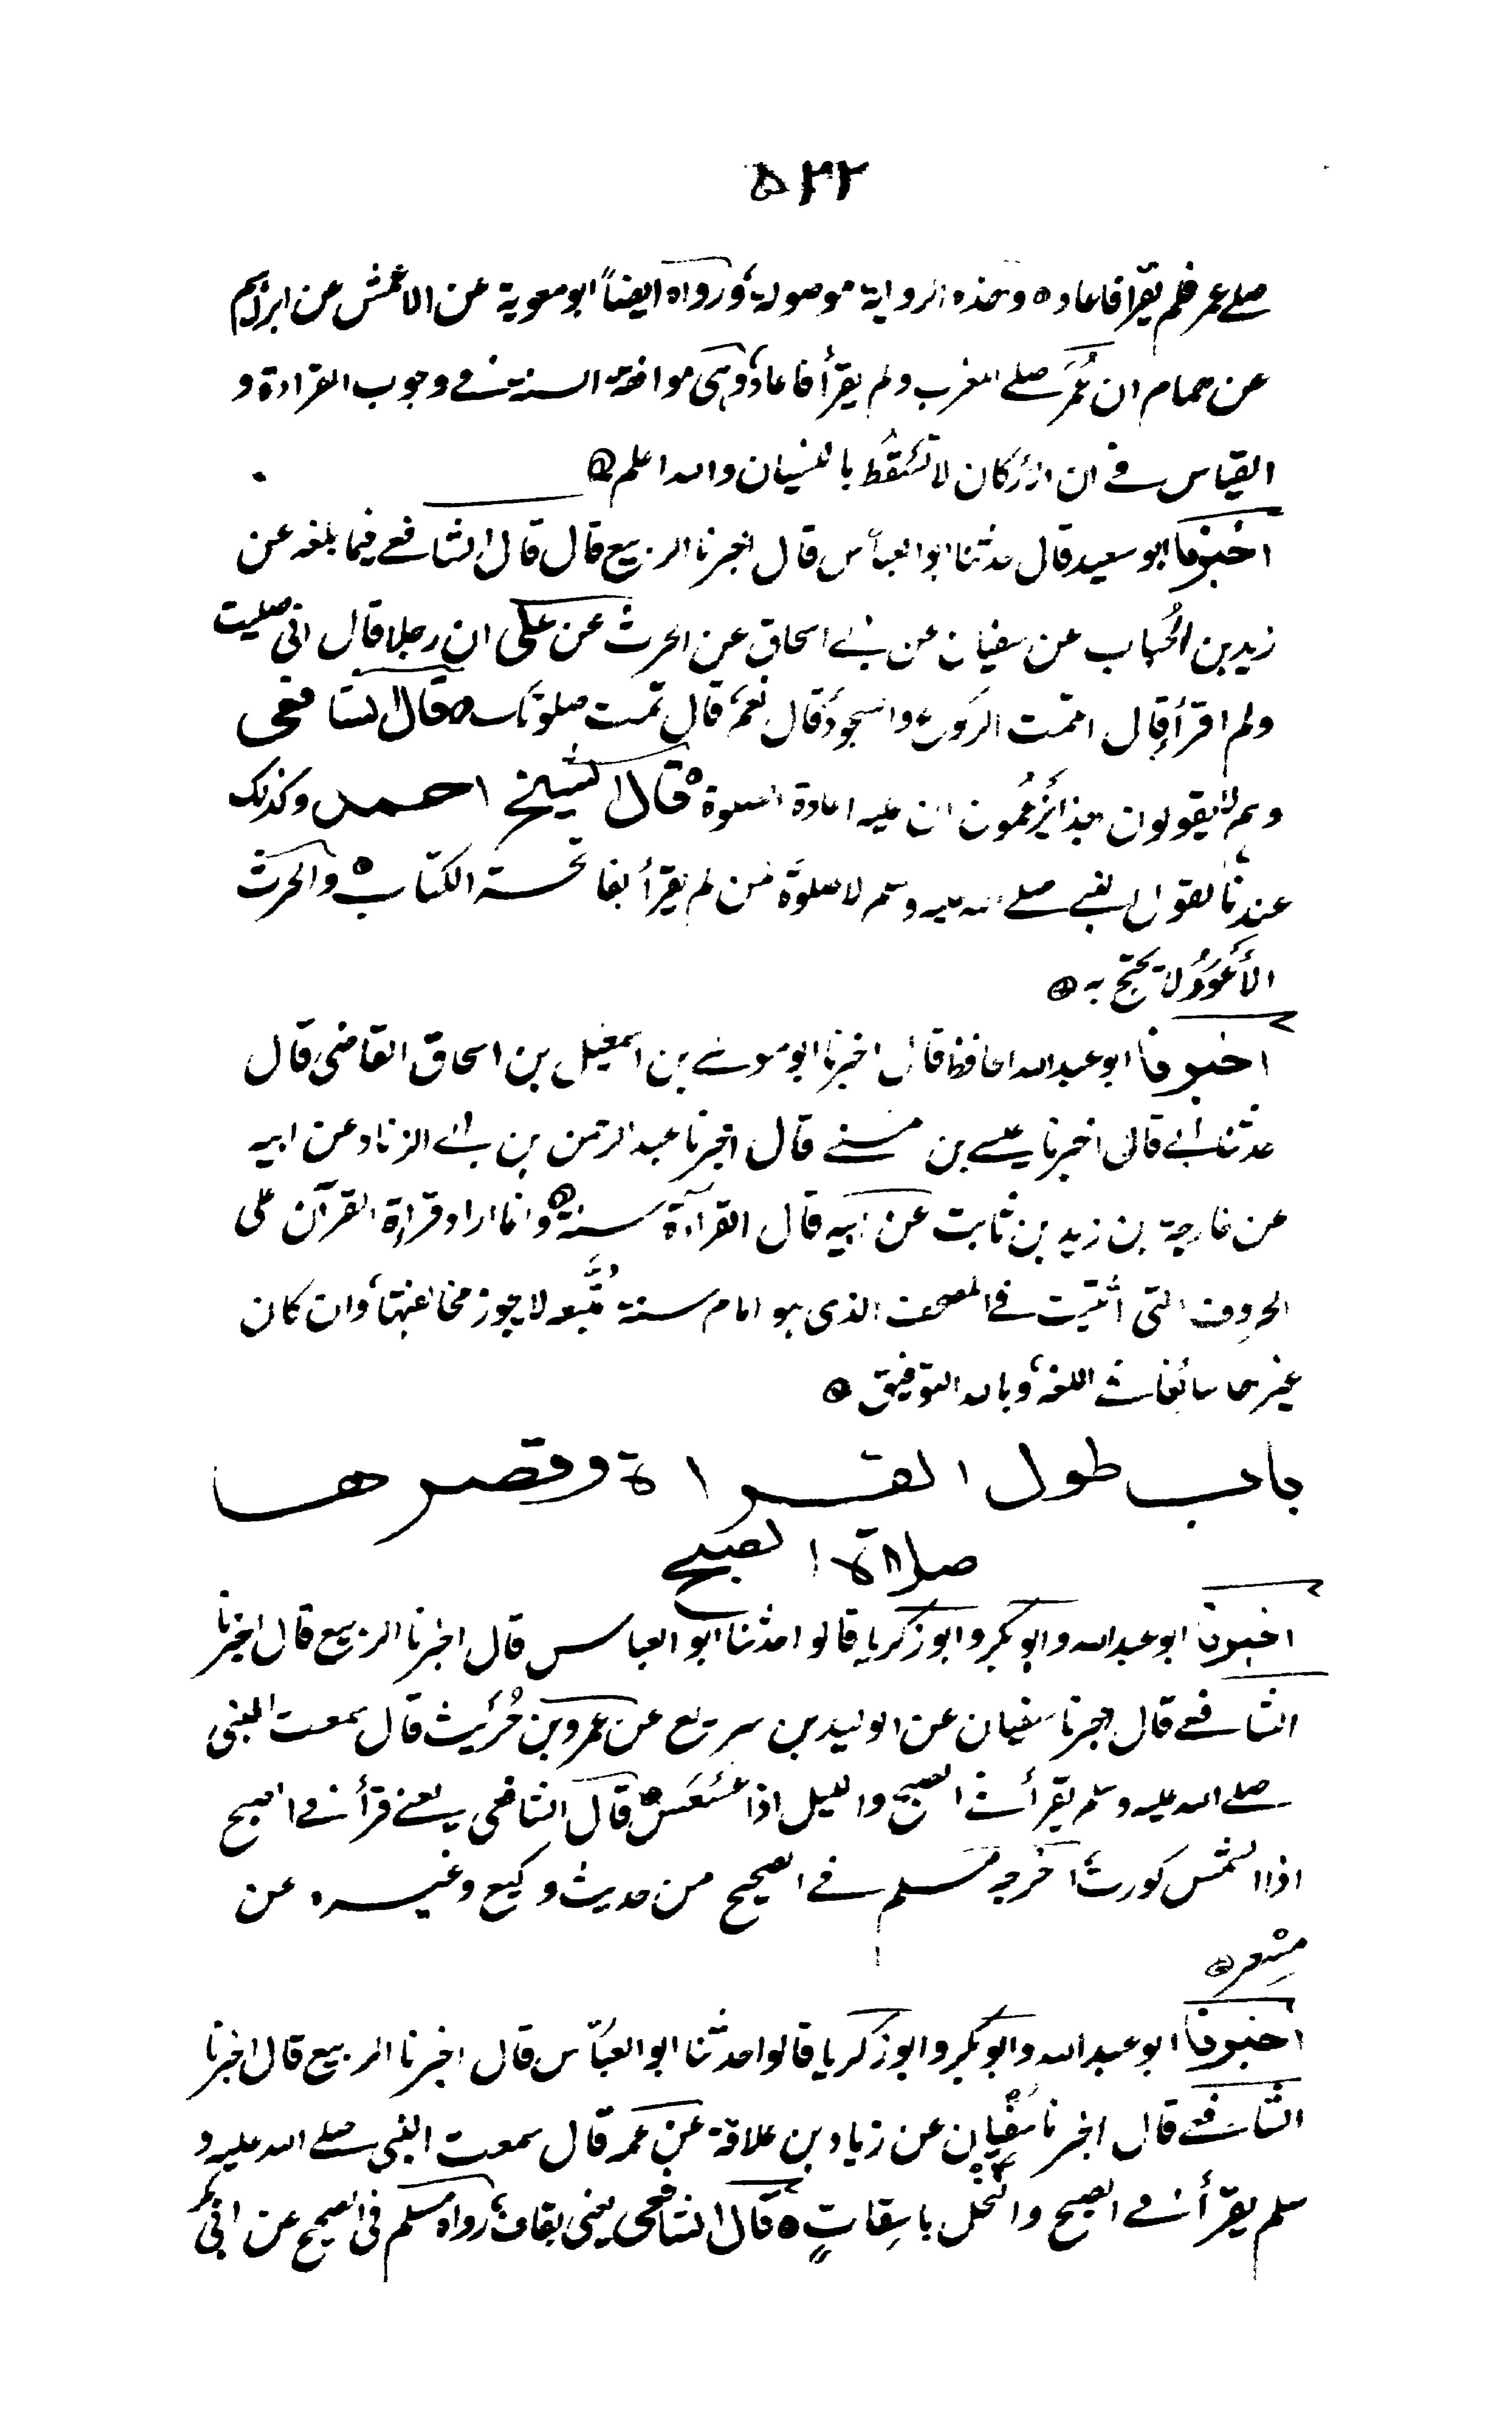 ۵۲۲
صلے عمر فلم يقرأ فاعاده وهذه الرواية موصولة ورواه ايضاً ابو معوية عن الاعمش عن ابراہيم
عن همام ان عُمَر صلے المغرب ولم يقرأ فاعاد وہی موافقة السنة فے وجوب القراءة و
القياس فے ان الأركان لا تسقُط بالنسيان والله اعلم
اخبرنا ابو سعيد قال حدثنا ابو العباس قال اخبرنا الربيع قال قال الشافعے فيما بلغه عن
زيد بن الحُباب عن سفيان عن ابے اسحاق عن الحرث عن علی ان رجلا قال انی صليت
ولم اقرأ قال اتممت الركوع والسجود قال نعم قال تمت صلوتك قال الشافعی
وہم لا يقولون بهذا يزعُمون ان عليه اعادة الصلوة قال الشيخ احمد وكذلك
عندنا لقول النبے صلے الله عليه وسلم لا صلوة لمن لم يقرأ بفاتحة الكتاب والحرث
الأعوَرُ لا يحتج به
اخبرنا ابو عبد الله الحافظ قال اخبرنا ابو موسے بن اسمعيل بن اسحاق القاضی قال
حدثنا ابے قال اخبرنا عيسے بن مينے قال اخبرنا عبد الرحمن بن ابے الزناد عن ابيه
عن خارجة بن زيد بن ثابت عن ابيه قال القراءة سنة وانما اراد قراءة القرآن علی
الحروف التی أثبتت فے المصحف الذی ہو امام سنة مُتَّبعه لا يجوز مخالفتها وان كان
غيرها سائغا فے اللغة وبالله التوفيق
باب طول القراة وقصرها
صلاة الصبح
اخبرنا ابو عبد الله وابو بكر وابو زكريا قالوا حدثنا ابو العباس قال اخبرنا الربيع قال اخبرنا
الشافعے قال اخبرنا سفيان عن الوليد بن سريع عن عمرو بن حُرَيث قال سمعت النبی
صلے الله عليه وسلم يقرأ فے الصبح والليل اذا عَسْعَسَ قال الشافعی يعنے قرأ فے الصبح
اذا الشمس كورت اخرجه مسلم فے الصحيح من حديث وكيع وغيره عن
مِسْعر
اخبرنا ابو عبد الله وابو بكر وابو زكريا قالوا حدثنا ابو العبّاس قال اخبرنا الربيع قال اخبرنا
الشافعے قال اخبرنا سُفيان عن زياد بن علاقة عن عمه قال سمعت النبی صلے الله عليه و
سلم يقرأ فے الصبح والنخل باسِقاتٍ قال الشافعی يعنی بقاف رواه مسلم فی الصحيح عن ابی بكر